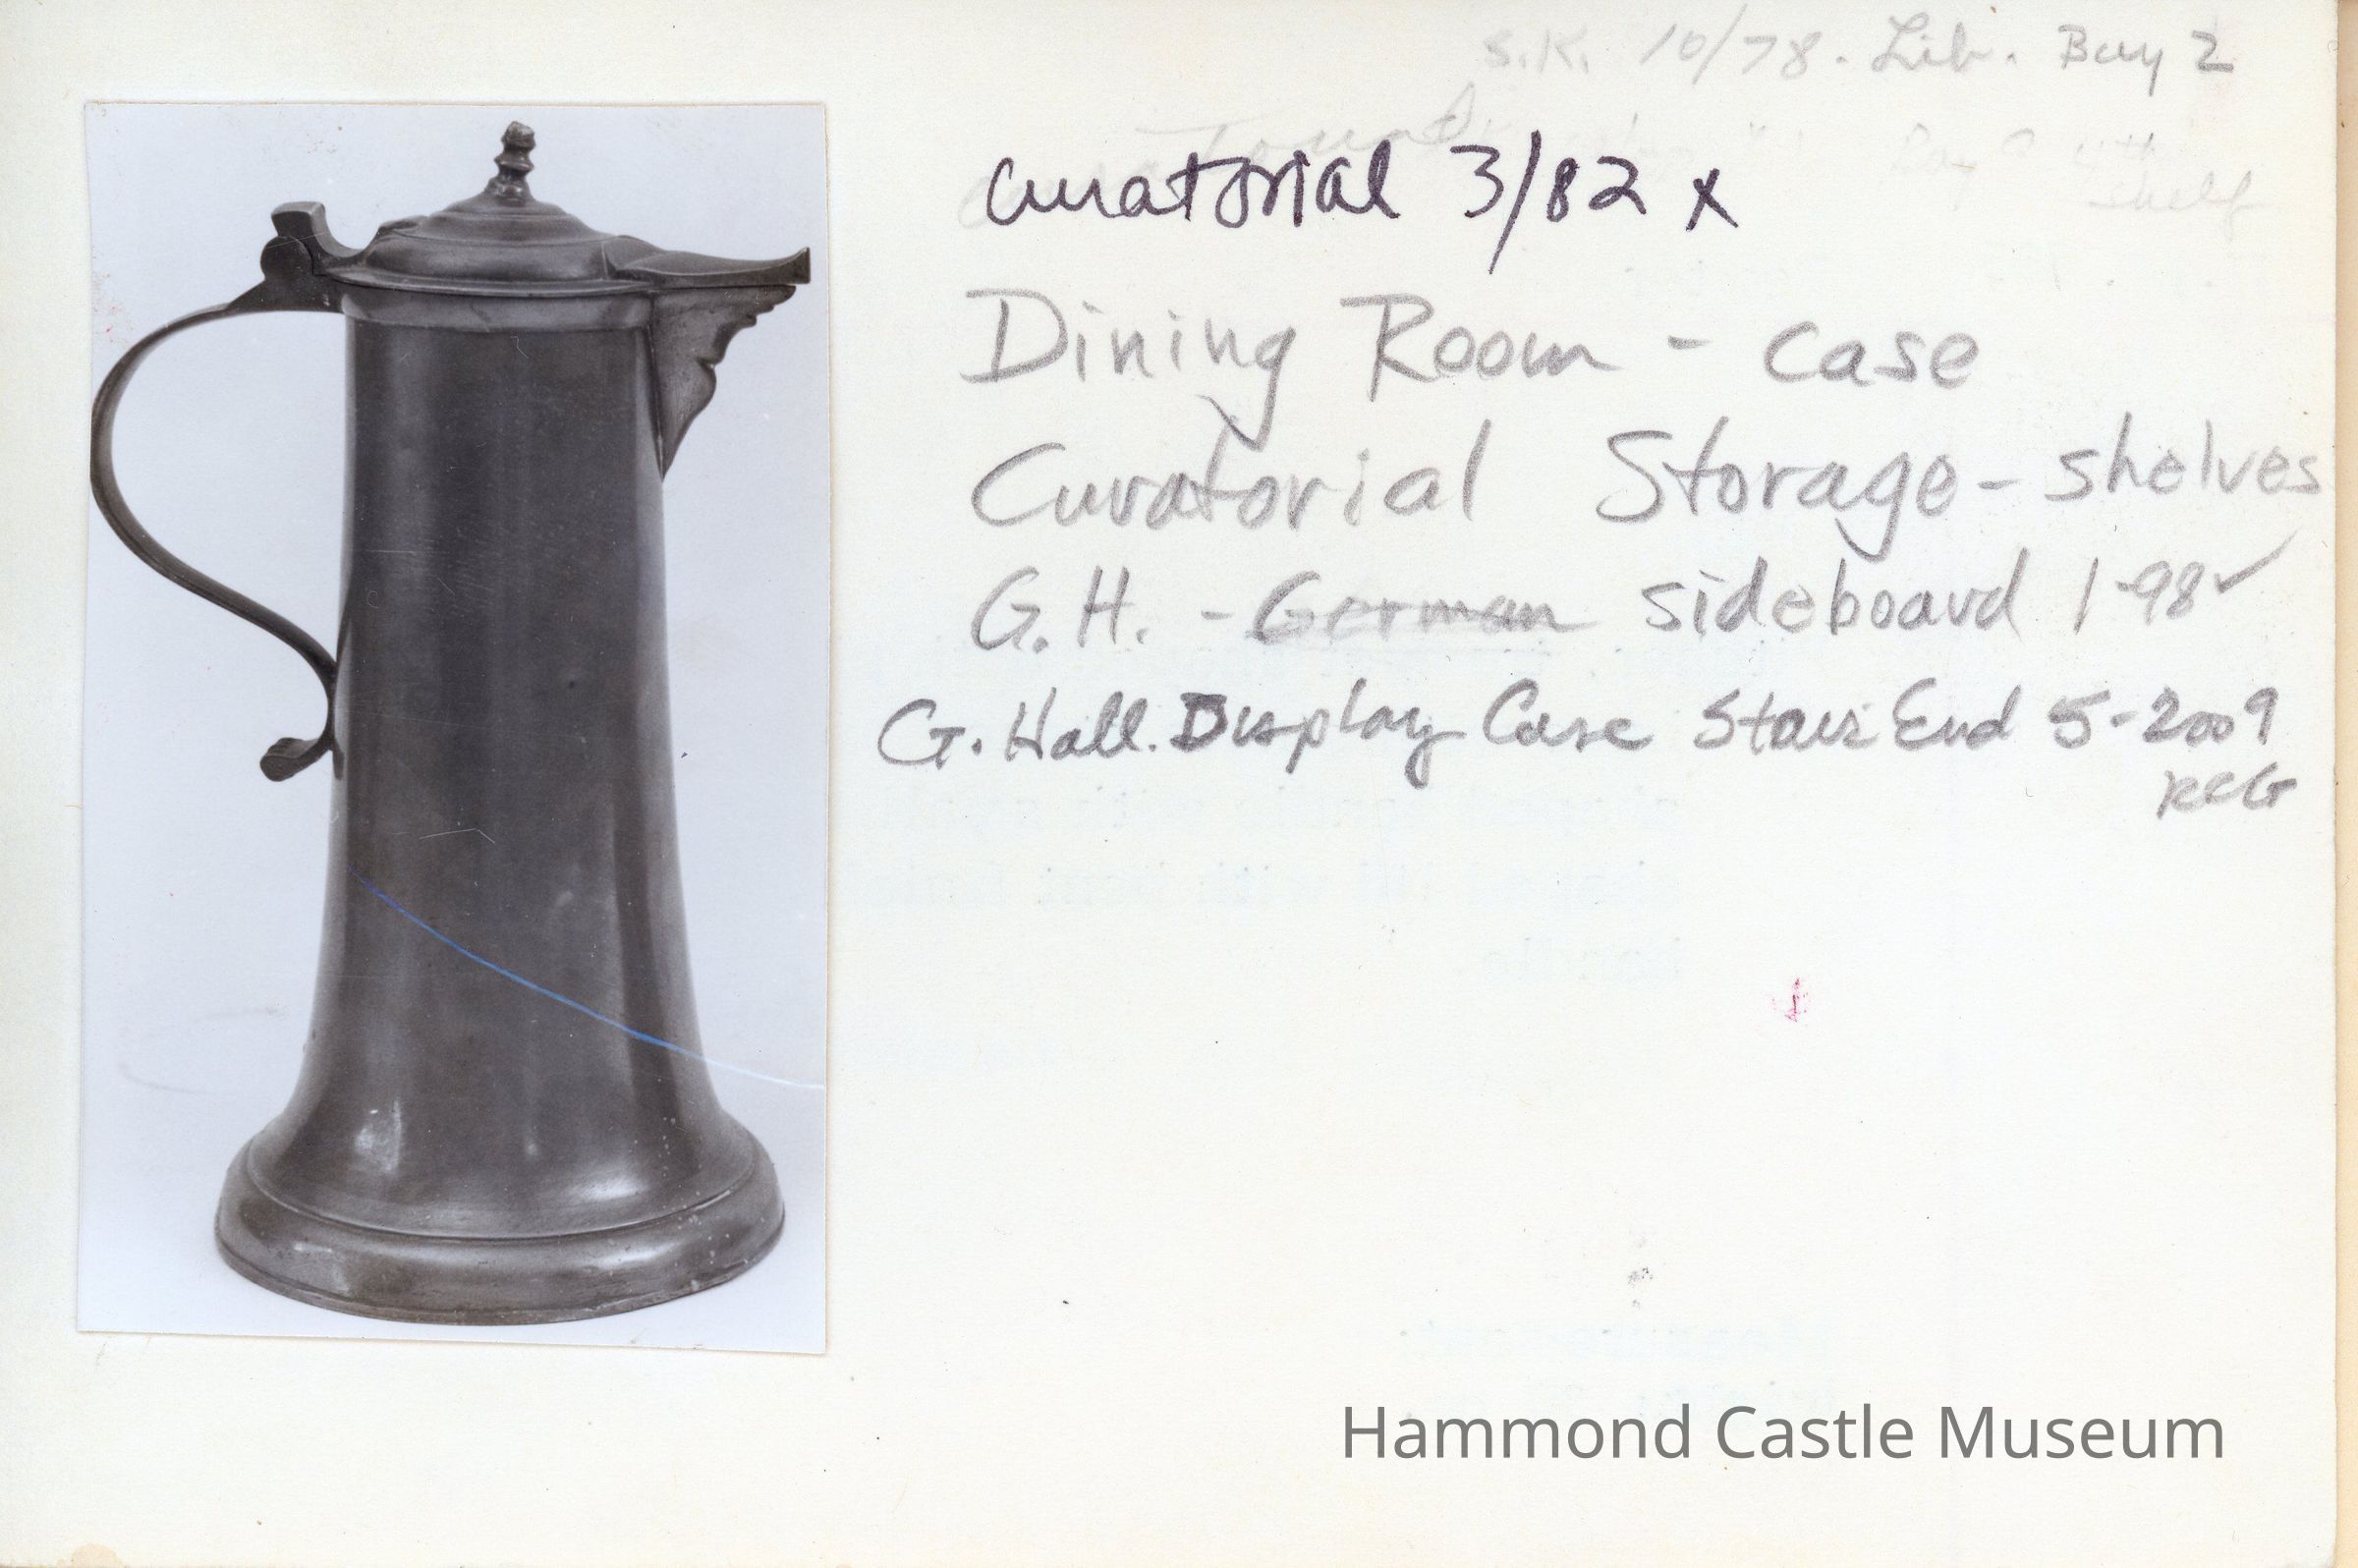 S.K. 10/78. Lib. Bay 2
4th
shelf
curatorial 3/82 x
Dining Room - case
Curatorial Storage - shelves
G.H. - German sideboard 1-98 ✓
G. Hall. Display Case Stair End 5-2009
RCG
Hammond Castle Museum